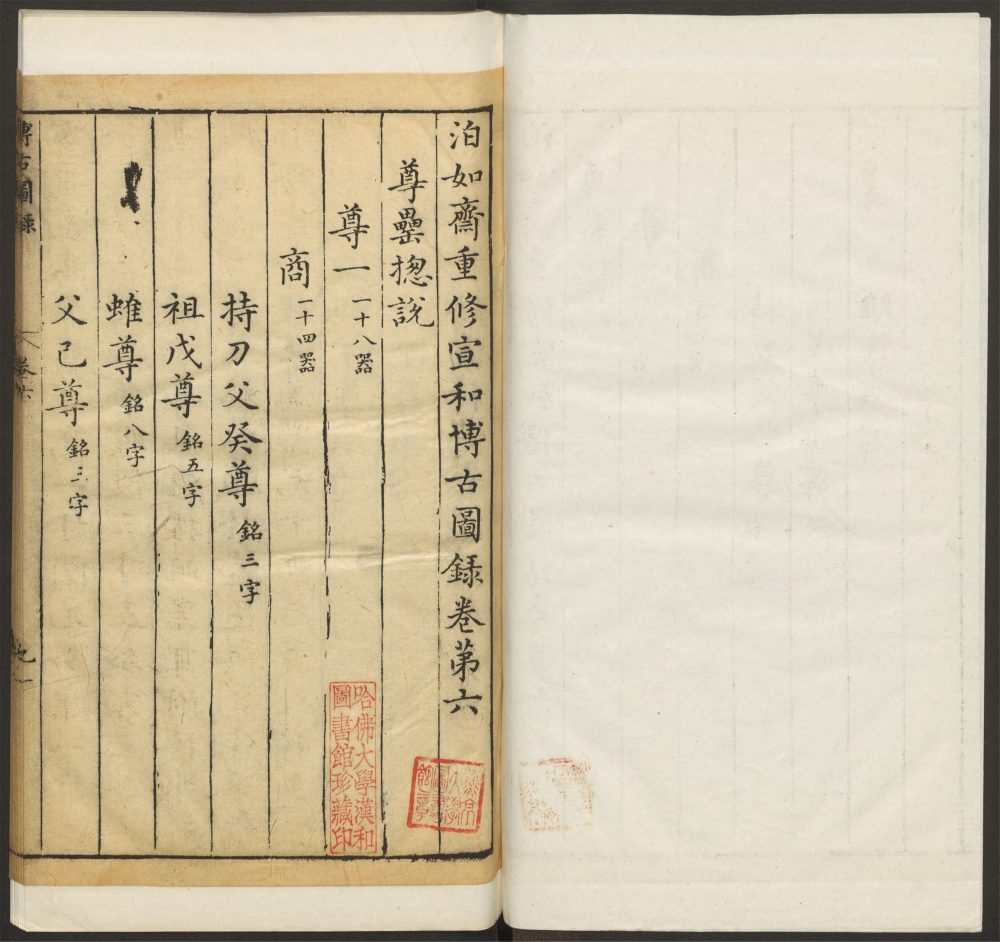 泊如齋重修宣和博古圖録卷第六
尊罍摠說
尊一 一十八器
商 一十四器
持刀父癸尊 銘三字
祖戊尊 銘五字
蜼尊 銘八字
父己尊 銘三字
博古圖録
卷六
哈佛大學漢和
圖書館珍藏印